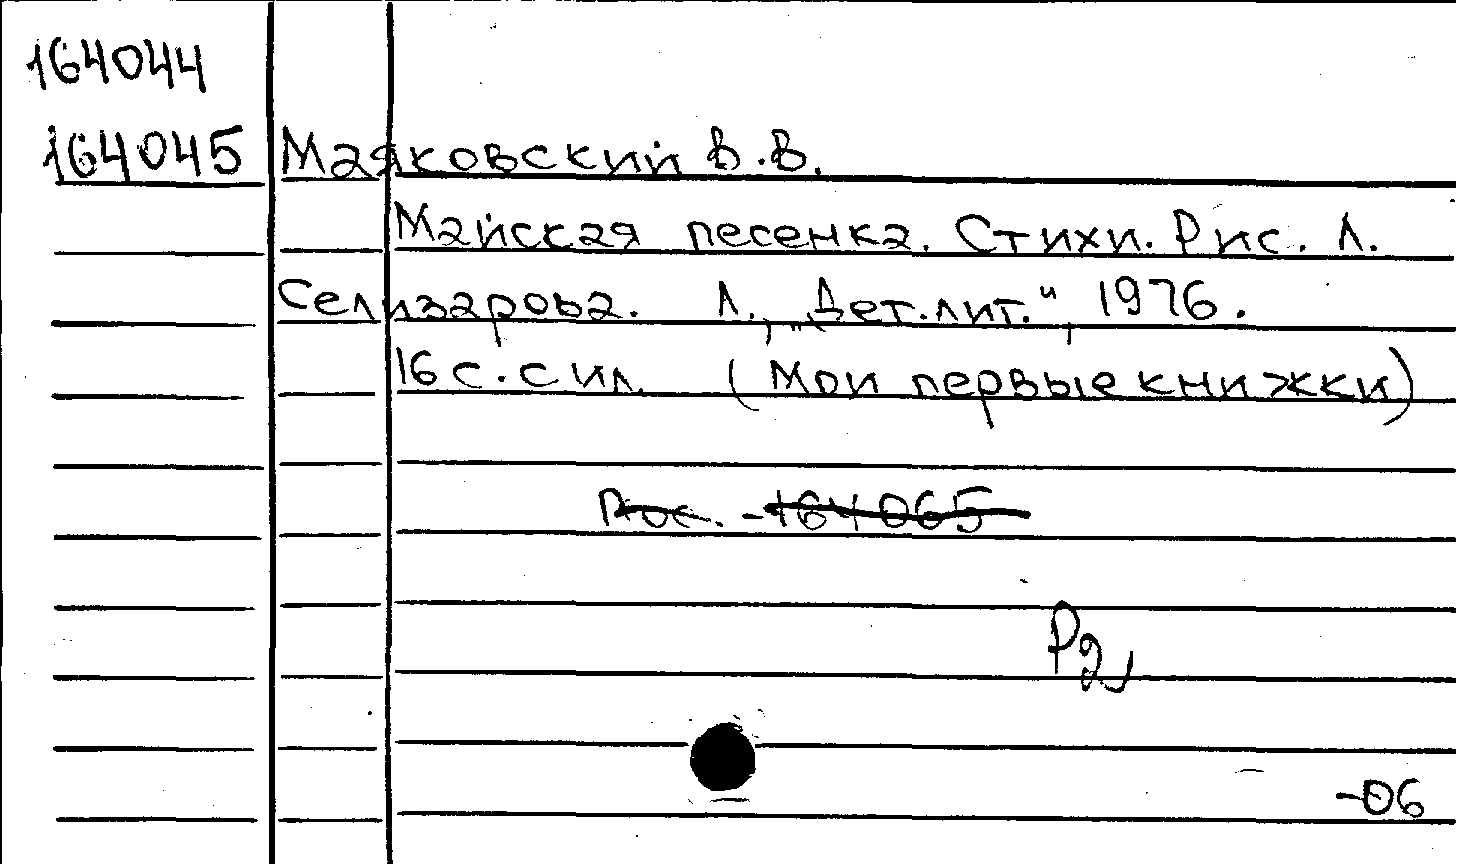 164044
164045 Маяковский В.В.
Майская песенка. Стихи. Рис. Л.
Селизарова. Л., „Дет.лит.", 1976.
16 с. с ил. (Мои первые книжки)
164065
Р2
-06